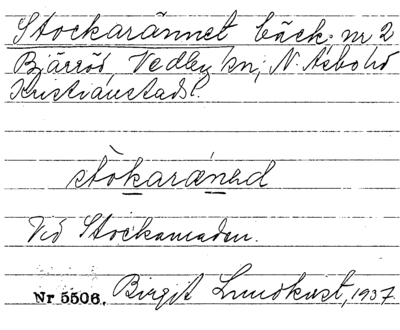 Stockarännet bäck; nr 2
Bjärröd, Vedby sn; N. Åsbo hd
Kristianstads l.
stòkaránəd
Vid Stockamaden.
Nr 5506. Birgit Lundkvist, 1937